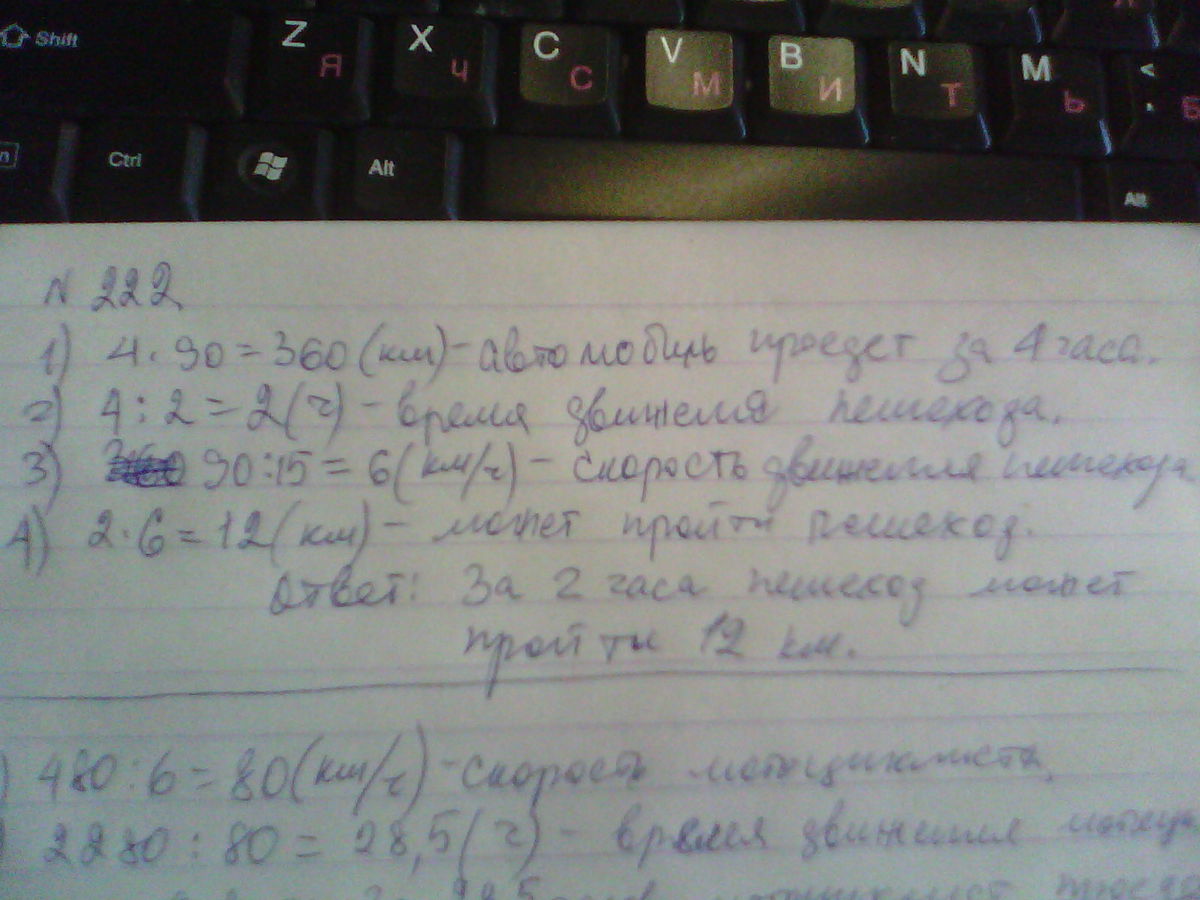 Shift Z Я X Ч C С V М B И N Т M Ь < Б
Ctrl Alt Alt
N 222
1) 4 · 90 = 360 (км) – автомобиль проедет за 4 часа.
2) 4 : 2 = 2 (ч) – время движения пешехода.
3) 90 : 15 = 6 (км/ч) – скорость движения пешехода
4) 2 · 6 = 12 (км) – может пройти пешеход.
Ответ: За 2 часа пешеход может
пройти 12 км.
) 480 : 6 = 80 (км/ч) – скорость мотоциклиста.
) 2280 : 80 = 28,5 (ч) – время движения мотоци
мотоциклист проед